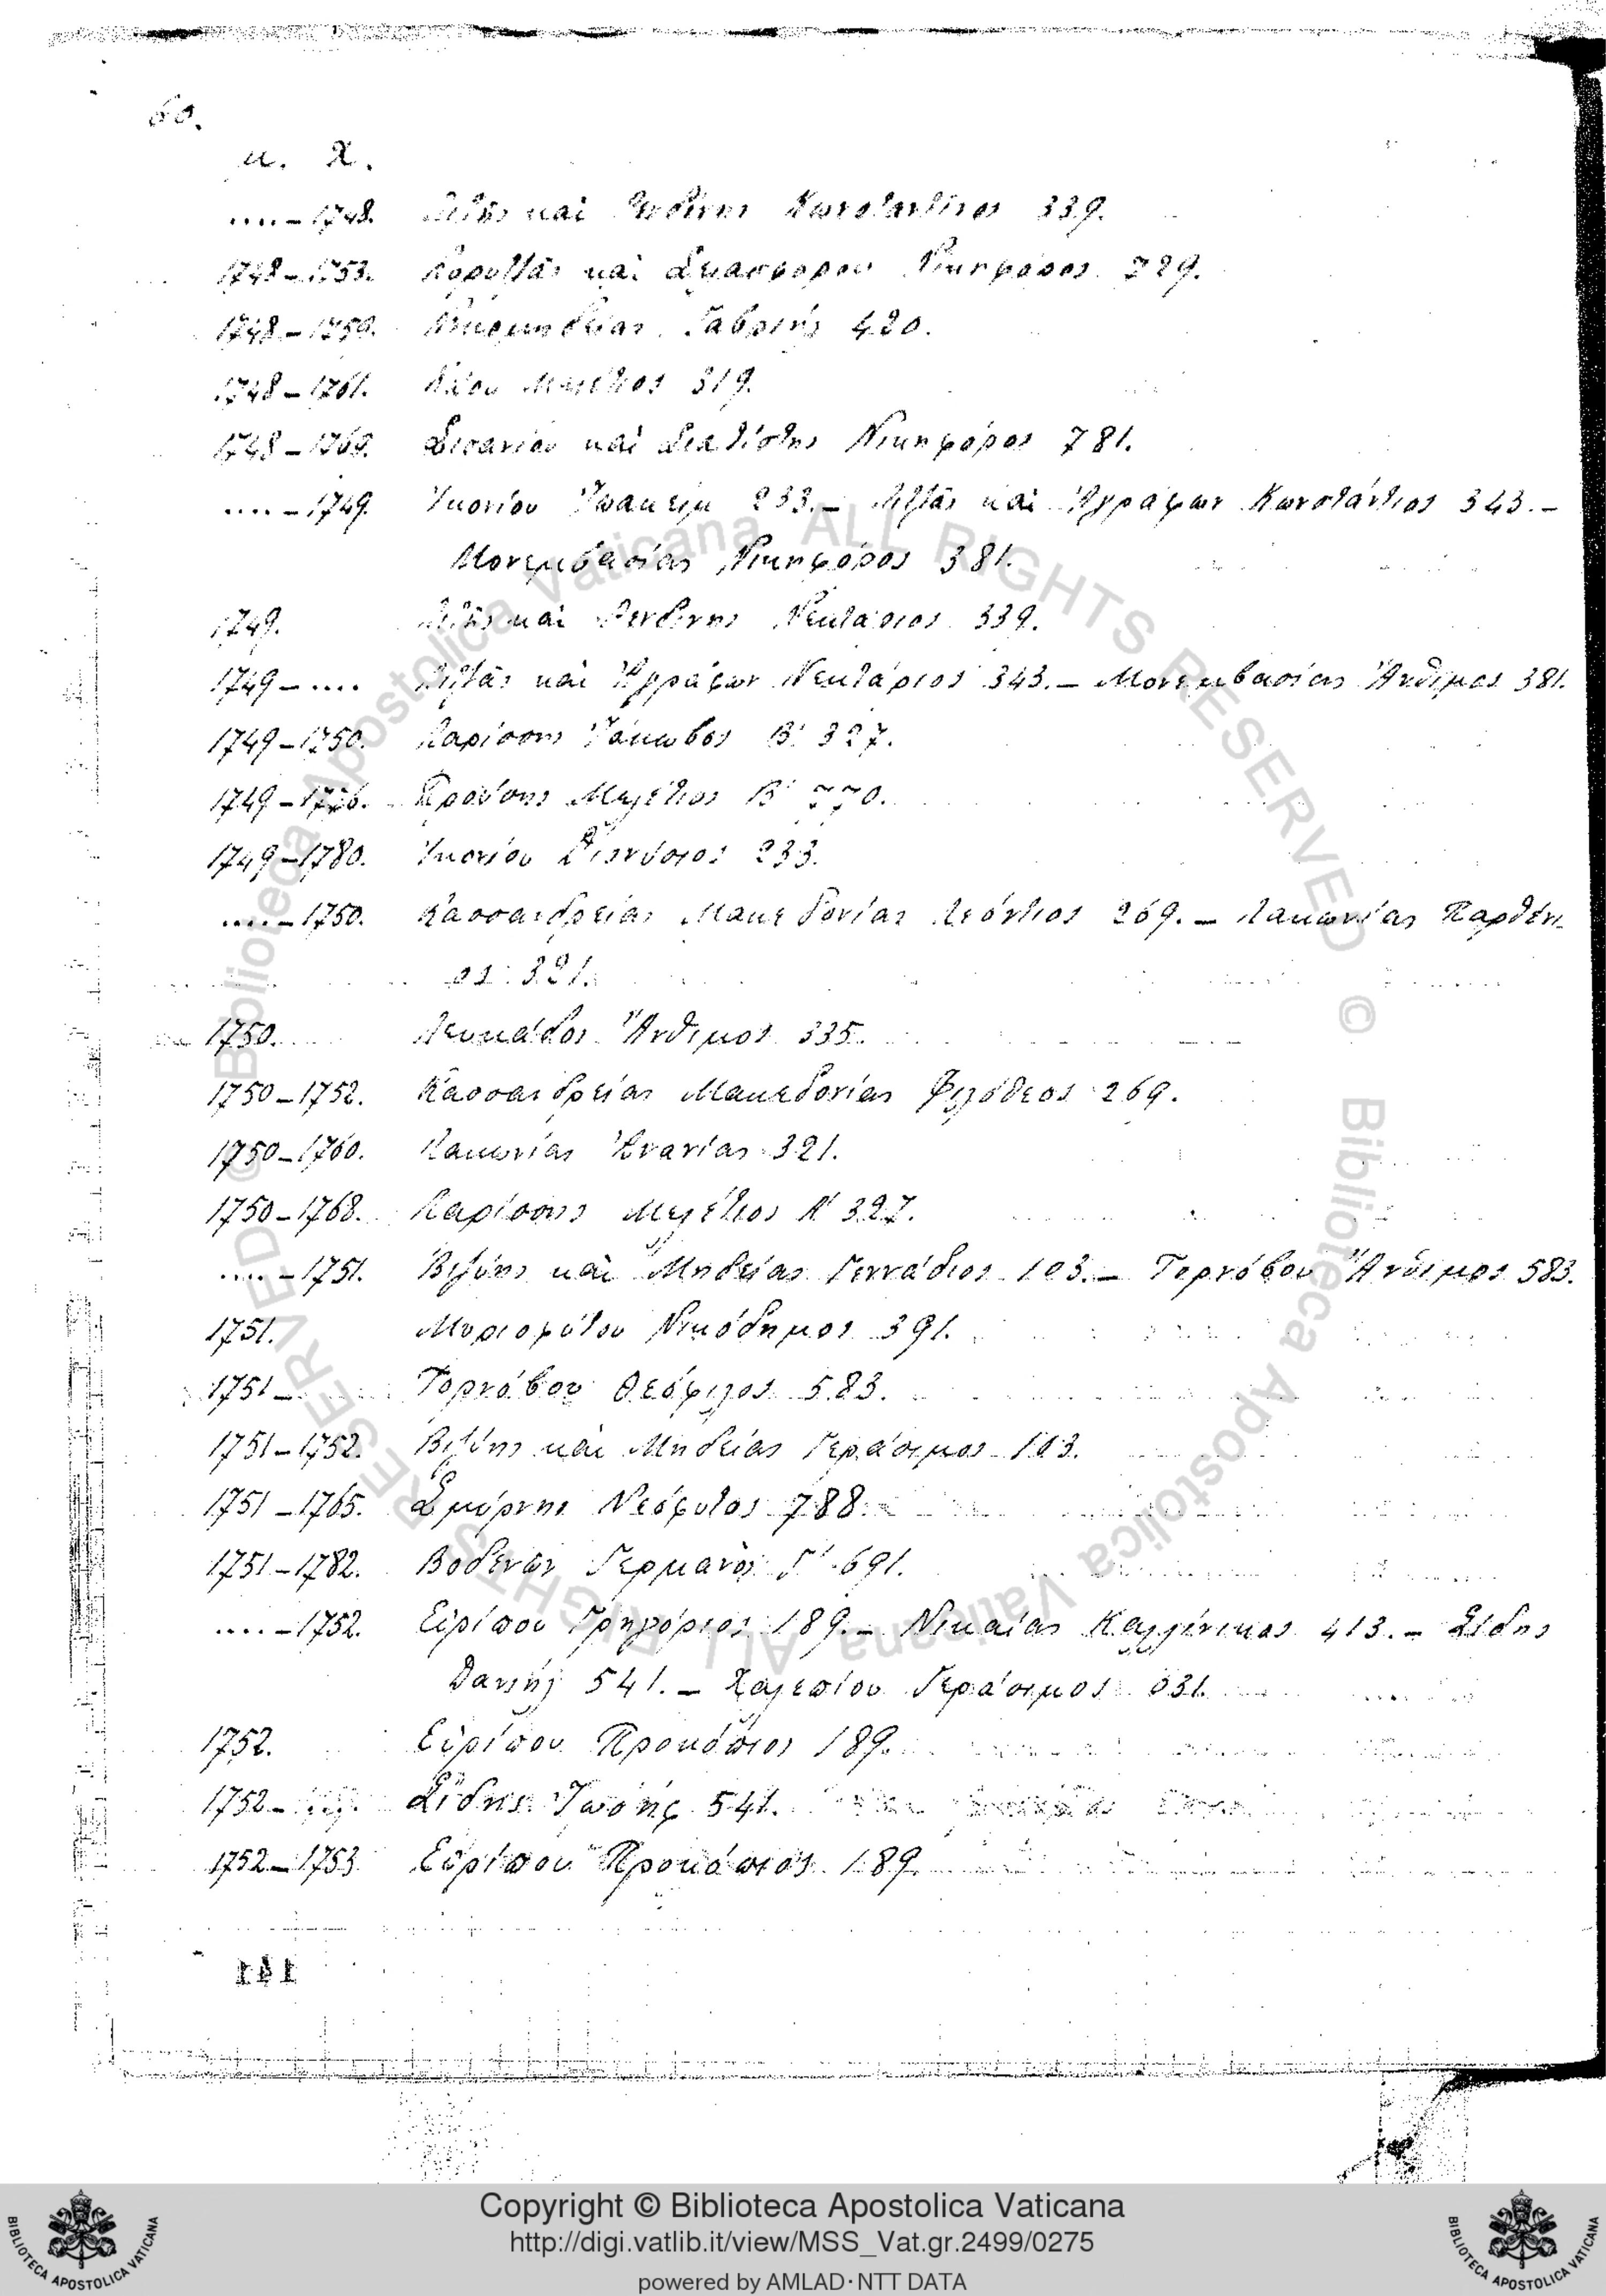 60.
μ. Χ.
....–1748. Λιτῆς καὶ Ῥενδίνης Κωνστάντιος 339.
1748–1753. Κορυτσᾶς καὶ Σελασφόρου Νικηφόρος 229.
1748–1750. Νικομηδείας Γαβριὴλ 420.
1748–1761. Μελέτιος 319.
1748–1769. Σισανίου καὶ Σιατίστης Νικηφόρος 781.
....–1749. Ἰκονίου Ἰωακεὶμ 233.– Λιτζᾶς καὶ Ἀγράφων Κωνστάντιος 343.–
Μονεμβασίας Νικηφόρος 381.
1749. Λιτῆς καὶ Ῥενδίνης Νεκτάριος 339.
1749–.... Λιτζᾶς καὶ Ἀγράφων Νεκτάριος 343.– Μονεμβασίας Ἄνθιμος 381.
1749–1750. Λαρίσσης Ἰάκωβος Β' 327.
1749–1776. Προύσης Μελέτιος Β' 770.
1749–1780. Ἰκονίου Διονύσιος 233.
....–1750. Κασσανδρείας Μακεδονίας Λεόντιος 269.– Λακωνίας Παρθένι-
ος 321.
1750. Λευκάδος Ἄνθιμος 335.
1750–1752. Κασσανδρείας Μακεδονίας Φιλόθεος 269.
1750–1760. Λακωνίας Ἀνανίας 321.
1750–1768. Λαρίσσης Μελέτιος Α' 327.
....–1751. Βιζύης καὶ Μηδείας Γεννάδιος 103.– Τορνόβου Ἄνθιμος 583.
1751. Μυριοφύτου Νικόδημος 391.
1751–.... Τορνόβου Θεόφιλος 583.
1751–1752. Βιζύης καὶ Μηδείας Γεράσιμος 103.
1751–1765. Σμύρνης Νεόφυτος 788.
1751–1782. Βοδενῶν Γερμανὸς Γ' 691.
....–1752. Εὐρίπου Γρηγόριος 189.– Νικαίας Καλλίνικος 413.– Σίδης
Δανιὴλ 541.– Χαλεπίου Γεράσιμος 631.
1752. Εὐρίπου Προκόπιος 189.
1752– Σίδης Ἰωσὴφ 541.
1752–1753. Εὐρίπου Προκόπιος 189.
Copyright © Biblioteca Apostolica Vaticana
http://digi.vatlib.it/view/MSS_Vat.gr.2499/0275
powered by AMLAD·NTT DATA